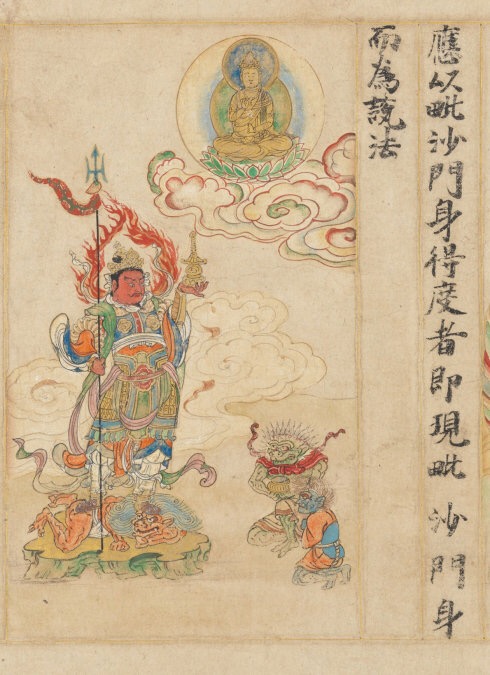 應以毗沙門身得度者即現毗沙門身
而為說法